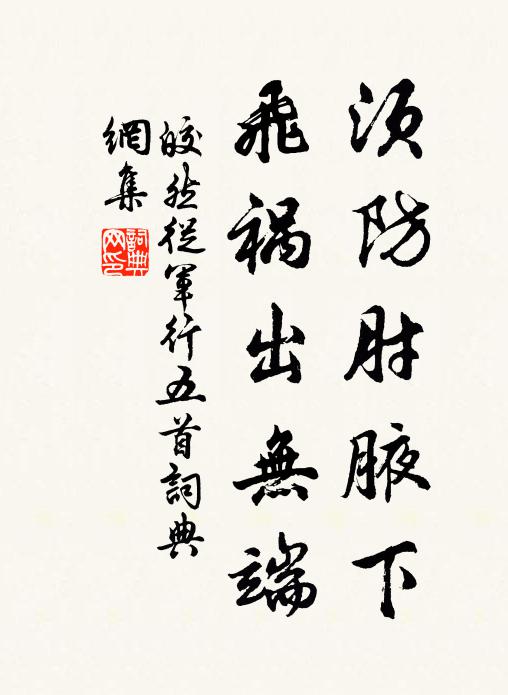 須防肘腋下
飛禍出無端
皎然從軍行五首詞典
網集
詞典網印